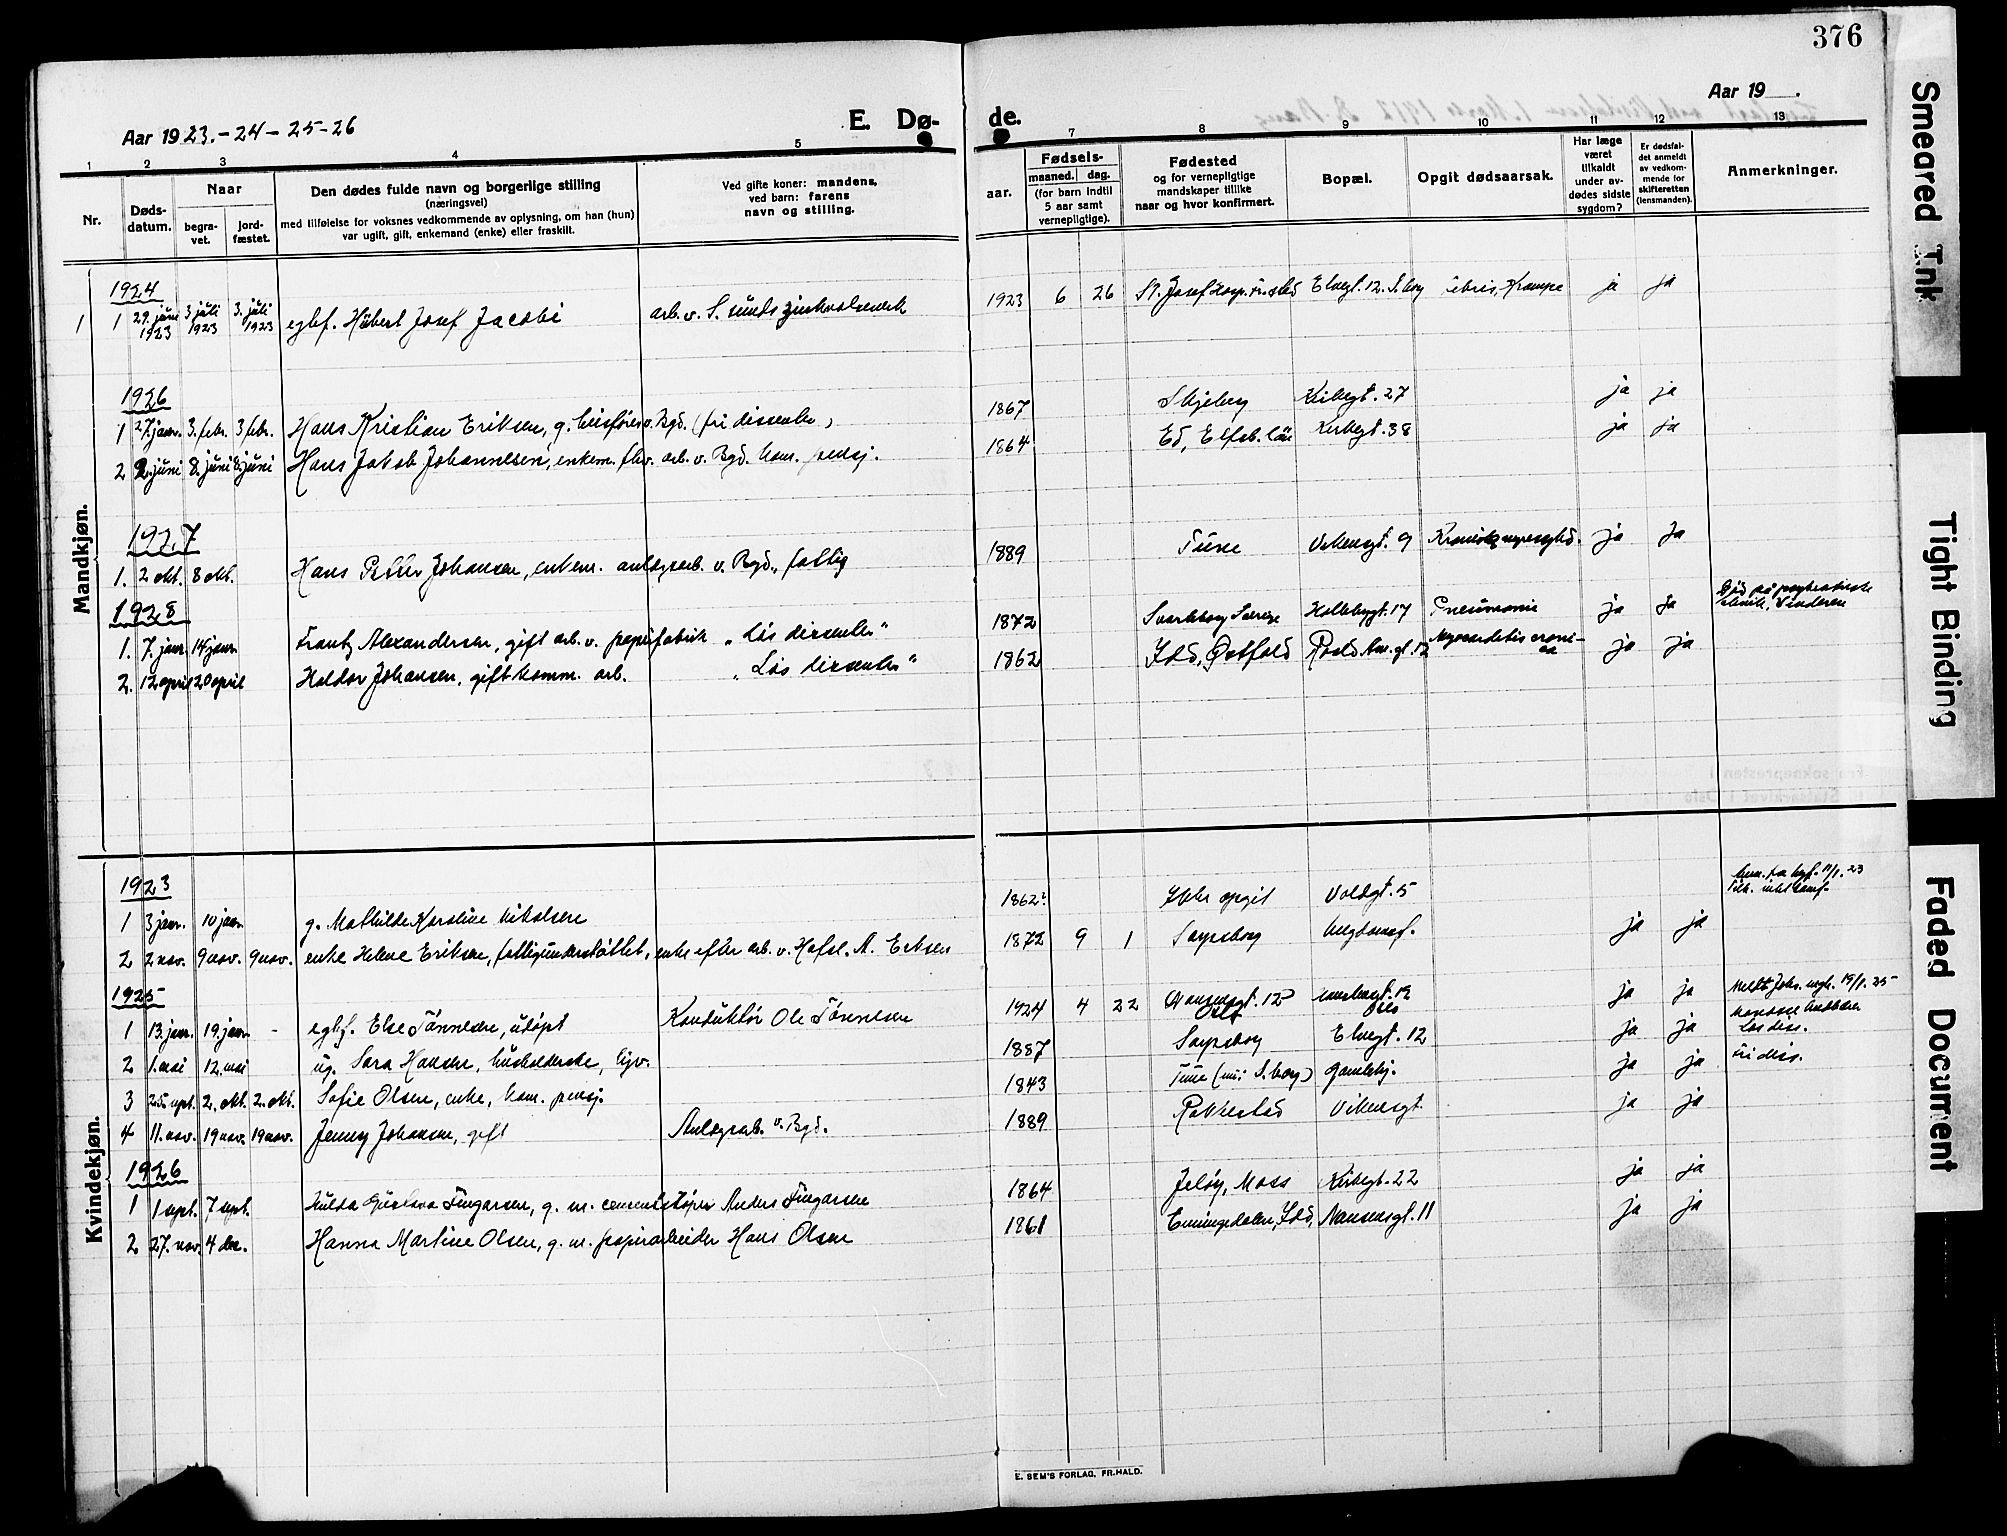 376
Aar 1923.-24-25-26
E. Dø-
de.
Aar 19 .
1 2 3 4 5 7 8 9 10 11 12 13
Nr.
Døds-
datum.
Naar
begra-
vet.
jord-
fæstet.
Den dødes fulde navn og borgerlige stilling
(næringsvei)
med tilføielse for voksnes vedkommende av oplysning, om han (hun)
var ugift, gift, enkemand (enke) eller fraskilt.
Ved gifte koner: mandens,
ved barn: farens
navn og stilling.
aar.
Fødsels-
maaned. dag.
(for barn indtil
5 aar samt
vernepligtige).
Fødested
og for vernepligtige
mandskaper tillike
naar og hvor konfirmert.
Bopæl.
Opgit dødsaarsak.
Har læge
været
tilkaldt
under av-
dødes sidste
sygdom?
Er dødsfal-
det anmeldt
av vedkom-
mende for
skifteretten
(lensmanden).
Anmerkninger.
Mandkjøn.
1924
1 1 29. juni 1923 3 juli 1923 3. juli 1923 egbf. Hübert Josef Jacobi arb. v. S. sunds 1923 6 26 St. Josef Elvegt. 12. S.borg Krampe ja ja
1926
1 27. jan. 3. febr. 3 febr. Hans Kristian Eriksen, g. v. Bgd. (fri dissenter) 1867 Skjeberg Kirkegt. 27 ja ja
2 2. juni 8. juni 8. juni Hans Jakob Johannesen, enkem. fhv. arb. v. Bgd. kom. pensj. 1864 Ed, Elfsb. län Kirkegt. 38 ja ja
1927
1. 2 okt. 8 okt. Hans Peter Johansen, enkem. anlægsarb. v. Bgd., fattig 1889 Tune Vikensgt. 9 Kronisk nyresygd. ja ja
1928
1. 7. jan. 14 jan. Frantz Alexandersen, gift arb. v. papirfabrik „Løs dissenter“ 1872 Svarteborg Sverige 17 Pneumonie ja ja Død på psykiatriske klinik, Vinderen
2. 12 april 20 april Haldor Johansen, gift komm. arb. „Løs dissenter“ 1862 Idd, Østfold Roald Am. gt. 12 ja ja
Kvindekjøn.
1923
1 3 jan. 10 jan. g. Mathilde Karoline Nikolsen 1862? Ikke opgit Voldgt. 5
2 2 nov. 9 nov. 9 nov. enke Helene Eriksen, fattigunderstøttet, enke efter arb. v. Hafsl. A. Eriksen 1872 9 1 Sarpsborg ja ja
1925
1 13. jan. 19. jan. - egtf. Else Tønnesen, udøpt Konduktør Ole Tønnesen 1924 4 22 Oslo Oslo ja ja
2 1. mai 12. mai ug. Sara Hansen, husholderske, 1887 Sarpsborg Elvegt. 12 ja ja Løs diss.
3 25. sept. 2. okt. 2. okt. Sofie Olsen, enke, kom. pensj. 1843 Tune (nu: S.borg) Gamlehj. ja ja Fri diss.
4 11. nov. 19 nov. 19 nov. Jenny Johansen, gift Anlægsarb. v. Bgd. 1889 Rakkestad Vikensgt. ja ja
1926
1 1 sept. 7 sept. Hulda Gustava Fingarsen, g. m. cementstøper Anders Fingarsen 1864 Jeløy, Moss Kirkegt. 22 ja ja
2 27. nov. 4 dec. Hanna Martine Olsen, g. m. papirarbeider Hans Olsen 1861 Enningdalen, Idd, Nansensgt. 11 ja ja
E. SEM'S FORLAG, FR.HALD.
Smeared Ink
Tight Binding
Faded Document